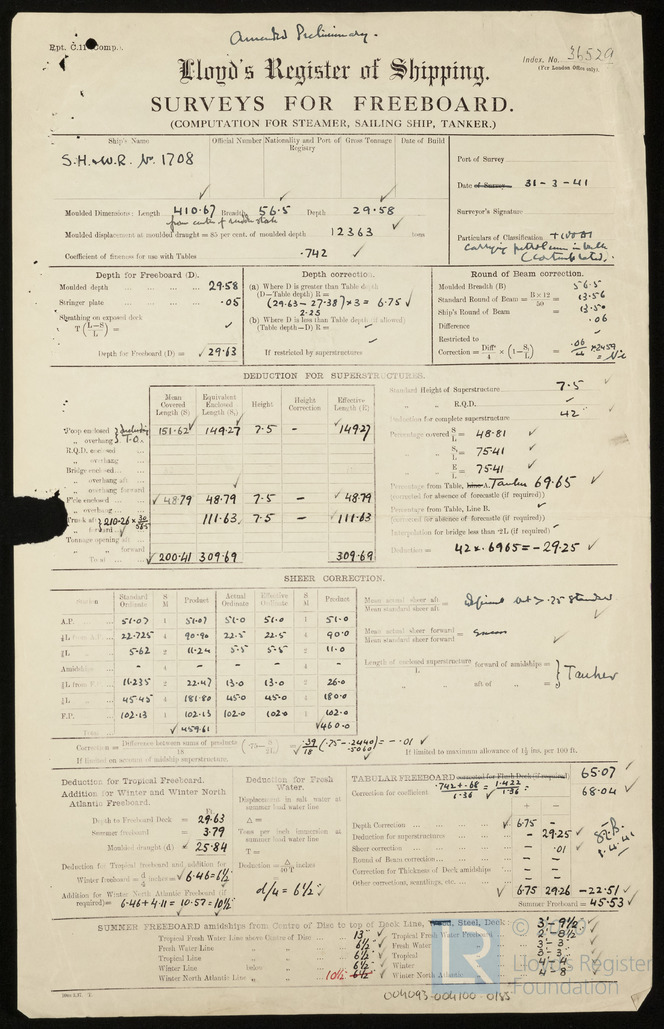 Amended Preliminary.
Rpt. C.11 Comp.
Index. No. 36529
(For London Office only).
Lloyd's Register of Shipping.
SURVEYS FOR FREEBOARD.
(COMPUTATION FOR STEAMER, SAILING SHIP, TANKER.)
Ship's Name Official Number Nationality and Port of Registry Gross Tonnage Date of Build
S.H. & W.R. No. 1708
Port of Survey
Date of Survey 31-3-41
Surveyor's Signature
Particulars of Classification +100A1
carrying petroleum in bulk
(contemplated).
Moulded Dimensions: Length 410.67 Breadth 56.5 Depth 29.58
from centre of rudder stock
Moulded displacement at moulded draught = 85 per cent. of moulded depth 12363 tons
Coefficient of fineness for use with Tables .742
Depth for Freeboard (D).
Moulded depth 29.58
Stringer plate .05
Sheathing on exposed deck
T (L-S / L) =
Depth for Freeboard (D) = 29.63
Depth correction.
(a) Where D is greater than Table depth
(D—Table depth) R =
(29.63 - 27.38) × 3 = 6.75
2.25
(b) Where D is less than Table depth (if allowed)
(Table depth—D) R =
If restricted by superstructures
Round of Beam correction.
Moulded Breadth (B) 56.5
Standard Round of Beam = B×12 / 50 = 13.56
Ship's Round of Beam = 13.50
Difference .06
Restricted to
Correction = Diff / 4 × (1 - S₁ / L) = .06 / 4 × .2459 = Nil
DEDUCTION FOR SUPERSTRUCTURES.
Mean Covered Length (S) Equivalent Enclosed Length (S₁) Height Height Correction Effective Length (E)
Poop enclosed } including 151.62 149.27 7.5 - 149.27
„ overhang } T.O.
R.Q.D. enclosed
„ overhang
Bridge enclosed
„ overhang aft
„ overhang forward
F'cle enclosed 48.79 48.79 7.5 - 48.79
„ overhang
Trunk aft } 210.26 × 30/56.5 111.63 7.5 - 111.63
„ forward
Tonnage opening aft
„ forward
Total 200.41 309.69 309.69
Standard Height of Superstructure 7.5
„ „ R.Q.D. -
Deduction for complete superstructure 42
Percentage covered S/L = 48.81
„ „ S₁/L = 75.41
„ „ E/L = 75.41
Percentage from Table, Line A. Tanker 69.65
(corrected for absence of forecastle (if required))
Percentage from Table, Line B.
(corrected for absence of forecastle (if required))
Interpolation for bridge less than .2L (if required)
Deduction = 42 × .6965 = - 29.25
SHEER CORRECTION.
Station Standard Ordinate S M Product Actual Ordinate Effective Ordinate S M Product
A.P. 51.07 1 51.07 51.0 51.0 1 51.0
⅙L from A.P. 22.725 4 90.90 22.5 22.5 4 90.0
⅓L „ 5.62 2 11.24 5.5 5.5 2 11.0
Amidships - 4 - - - 4 -
⅓L from F.P. 11.235 2 22.47 13.0 13.0 2 26.0
⅙L „ 45.45 4 181.80 45.0 45.0 4 180.0
F.P. 102.13 1 102.13 102.0 102.0 1 102.0
Total 459.61 460.0
Mean actual sheer aft / Mean standard sheer aft =
Mean actual sheer forward / Mean standard sheer forward =
Length of enclosed superstructure / L forward of amidships = } Tanker
„ aft of „ =
Correction = Difference between sums of products / 18 (.75 - S / 2L) = .39 / 18 (.75 - .2440) = - .01
.5060
If limited on account of midship superstructure.
If limited to maximum allowance of 1½ ins. per 100 ft.
Deduction for Tropical Freeboard.
Addition for Winter and Winter North Atlantic Freeboard.
Ft.
Depth to Freeboard Deck = 29.63
Summer freeboard = 3.79
Moulded draught (d) 25.84
Deduction for Tropical freeboard and addition for
Winter freeboard = d/4 inches = 6.46 = 6½
Addition for Winter North Atlantic Freeboard (if required) =
6.46 + 4.11 = 10.57 = 10½
Deduction for Fresh Water.
Displacement in salt water at summer load water line
Δ =
Tons per inch immersion at summer load water line
T =
Deduction = Δ / 40 T inches
d/4 = 6½
TABULAR FREEBOARD corrected for Flush Deck (if required) 65.07
Correction for coefficient .742 + .68 / 1.36 = 1.422 / 1.36 = 68.04
+ -
Depth Correction 6.75 -
Deduction for superstructures - 29.25
Sheer correction - .01
Round of Beam correction - -
Correction for Thickness of Deck amidships - -
Other corrections, scantlings, etc. - -
6.75 29.26 - 22.51
Summer Freeboard = 45.53
1.4.41
SUMMER FREEBOARD amidships from Centre of Disc to top of Deck Line, Wood, Steel, Deck: 3'-9½
Tropical Fresh Water Line above Centre of Disc 13
Fresh Water Line „ „ 6½
Tropical Line „ „ 6½
Winter Line below „ „ 6½
Winter North Atlantic Line „ „ 10½ 6½
Tropical Fresh Water Freeboard 2'-8½
Fresh Water „ 3'-3
Tropical „ 3'-3
Winter „ 4-4
Winter North Atlantic „ 4-8
004093-004100-0155
LR
Lloyd's Register
Foundation